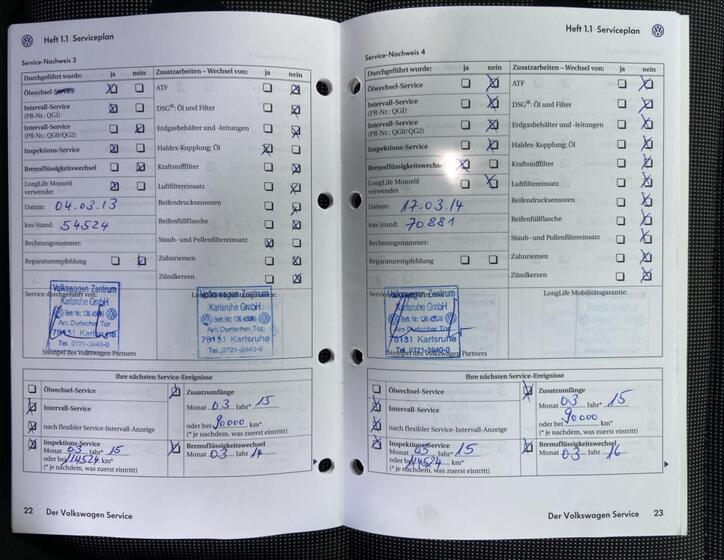 Heft 1.1 Serviceplan
Service-Nachweis 3
Durchgeführt wurde: ja nein
Ölwechsel-Service
Intervall-Service
(PR-Nr.: QG1)
Intervall-Service
(PR-Nr.: QG0/QG2)
Inspektions-Service
Bremsflüssigkeitswechsel
LongLife Motoröl
verwendet
Datum: 04.03.13
km-Stand: 54524
Rechnungsnummer:
Reparaturempfehlung
Zusatzarbeiten – Wechsel von: ja nein
ATF
DSG®: Öl und Filter
Erdgasbehälter und -leitungen
Haldex-Kupplung: Öl
Kraftstofffilter
Luftfiltereinsatz
Reifendrucksensoren
Reifenfüllflasche
Staub- und Pollenfiltereinsatz
Zahnriemen
Zündkerzen
Service durchgeführt von:
Volkswagen Zentrum
Karlsruhe GmbH
Am Durlacher Tor
76131 Karlsruhe
Tel. 0721-3840-0
Stempel des Volkswagen Partners
Volkswagen Zentrum
Karlsruhe GmbH
Am Durlacher Tor
76131 Karlsruhe
Tel. 0721-3840-0
Ihre nächsten Service-Ereignisse
Ölwechsel-Service
Intervall-Service
nach flexibler Service-Intervall-Anzeige
Inspektions-Service
Monat 03 Jahr* 15
oder bei 114524 km*
(* je nachdem, was zuerst eintritt)
Zusatzumfänge
Monat 03 Jahr* 15
oder bei 90000 km*
(* je nachdem, was zuerst eintritt)
Bremsflüssigkeitswechsel
Monat 03 Jahr 14
22 Der Volkswagen Service
Heft 1.1 Serviceplan
Service-Nachweis 4
Durchgeführt wurde: ja nein
Ölwechsel-Service
Intervall-Service
(PR-Nr.: QG1)
Intervall-Service
(PR-Nr.: QG0/QG2)
Inspektions-Service
Bremsflüssigkeitswechsel
LongLife Motoröl
verwendet
Datum: 17.03.14
km-Stand: 70881
Rechnungsnummer:
Reparaturempfehlung
Zusatzarbeiten – Wechsel von: ja nein
ATF
DSG®: Öl und Filter
Erdgasbehälter und -leitungen
Haldex-Kupplung: Öl
Kraftstofffilter
Luftfiltereinsatz
Reifendrucksensoren
Reifenfüllflasche
Staub- und Pollenfiltereinsatz
Zahnriemen
Zündkerzen
Volkswagen Zentrum
Karlsruhe GmbH
Am Durlacher Tor
76131 Karlsruhe
Tel. 0721-3840-0
Stempel des Volkswagen Partners
LongLife Mobilitätsgarantie:
Ihre nächsten Service-Ereignisse
Ölwechsel-Service
Intervall-Service
nach flexibler Service-Intervall-Anzeige
Inspektions-Service
Monat 03 Jahr* 15
oder bei 114524 km*
(* je nachdem, was zuerst eintritt)
Zusatzumfänge
Monat 03 Jahr* 15
oder bei 90000 km*
(* je nachdem, was zuerst eintritt)
Bremsflüssigkeitswechsel
Monat 03 Jahr 16
Der Volkswagen Service 23